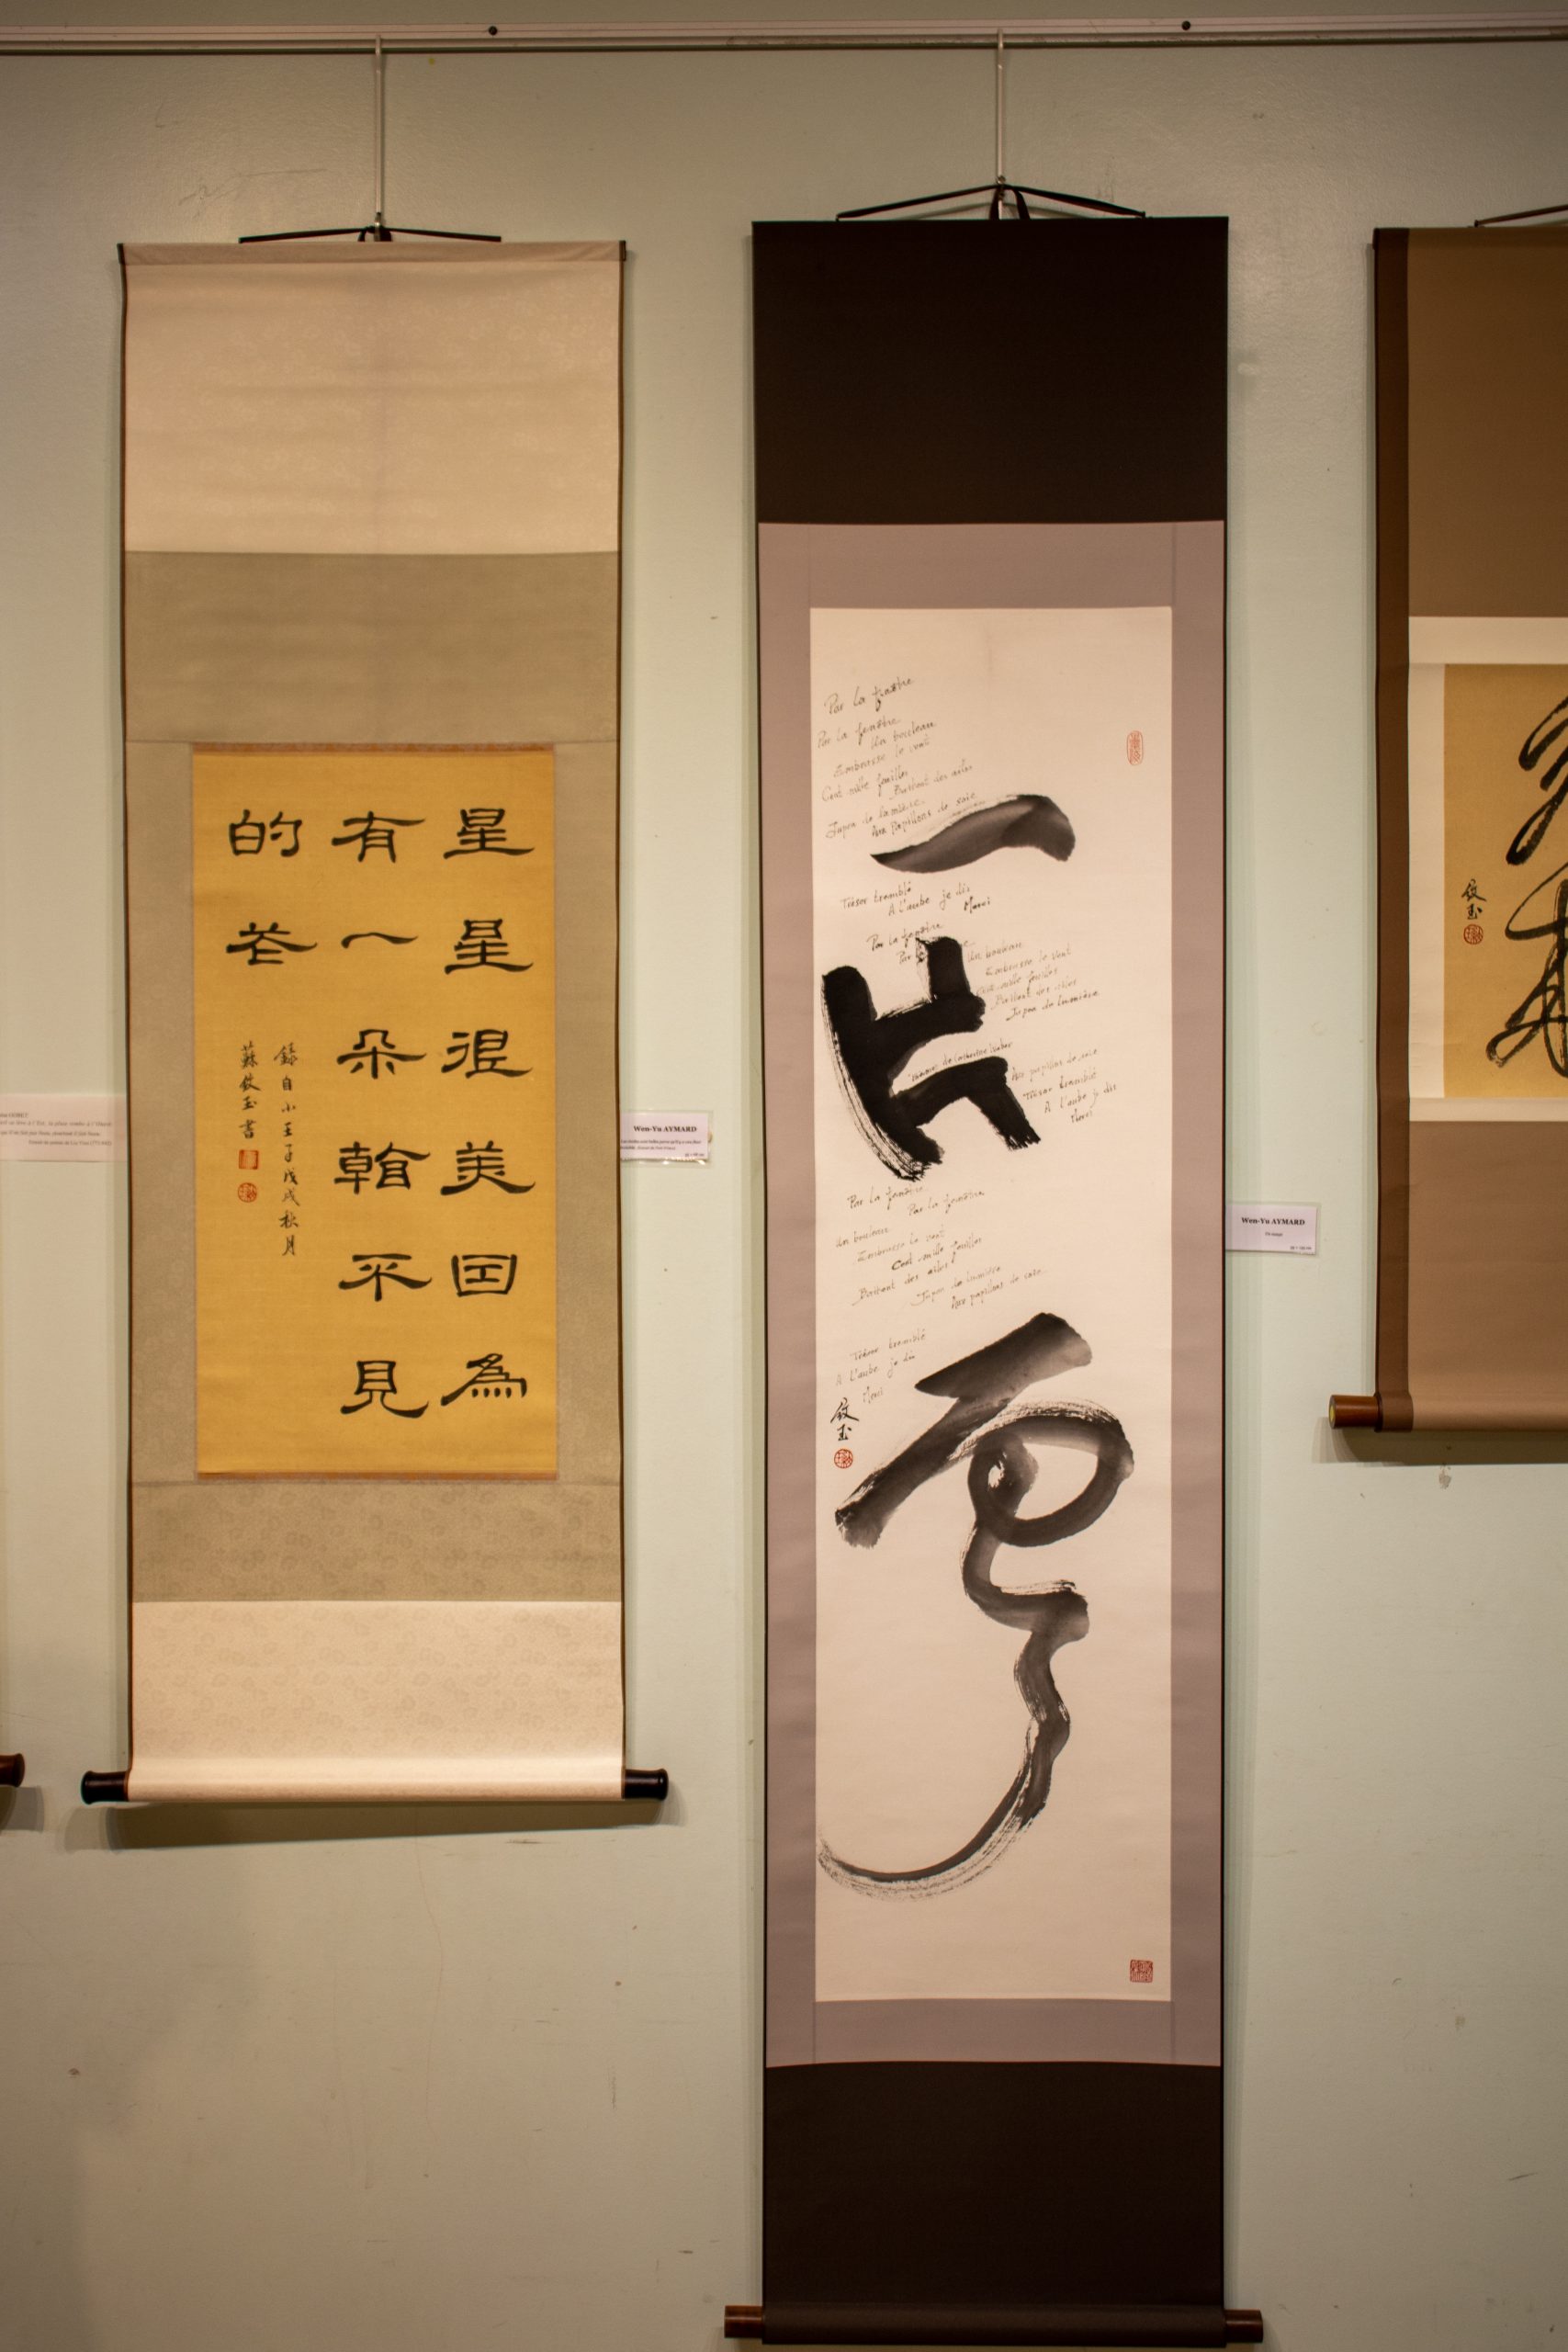 星星很美因為
有一朵看不見
的花
錄自小王子戊戌秋月
蘇妏玉書
Wen-Yu AYMARD
一片雲
Par la fenêtre
Par la fenêtre
Un bouleau
Embrasse le vent
Cent mille feuilles
Battent des ailes
Jupon de lumière
Aux papillons de soie
Trésor tremblé
A l'aube je dis
Merci
Par la fenêtre
Par
Un bouleau
Embrasse le vent
Cent mille feuilles
Battent des ailes
Jupon de lumière
Aux papillons de soie
Trésor tremblé
A l'aube je dis
Merci
Par la fenêtre
Par la fenêtre
Un bouleau
Embrasse le vent
Cent mille feuilles
Battent des ailes
Jupon de lumière
Aux papillons de soie
Trésor tremblé
A l'aube je dis
Merci
妏玉
Wen-Yu AYMARD
Un nuage
妏玉